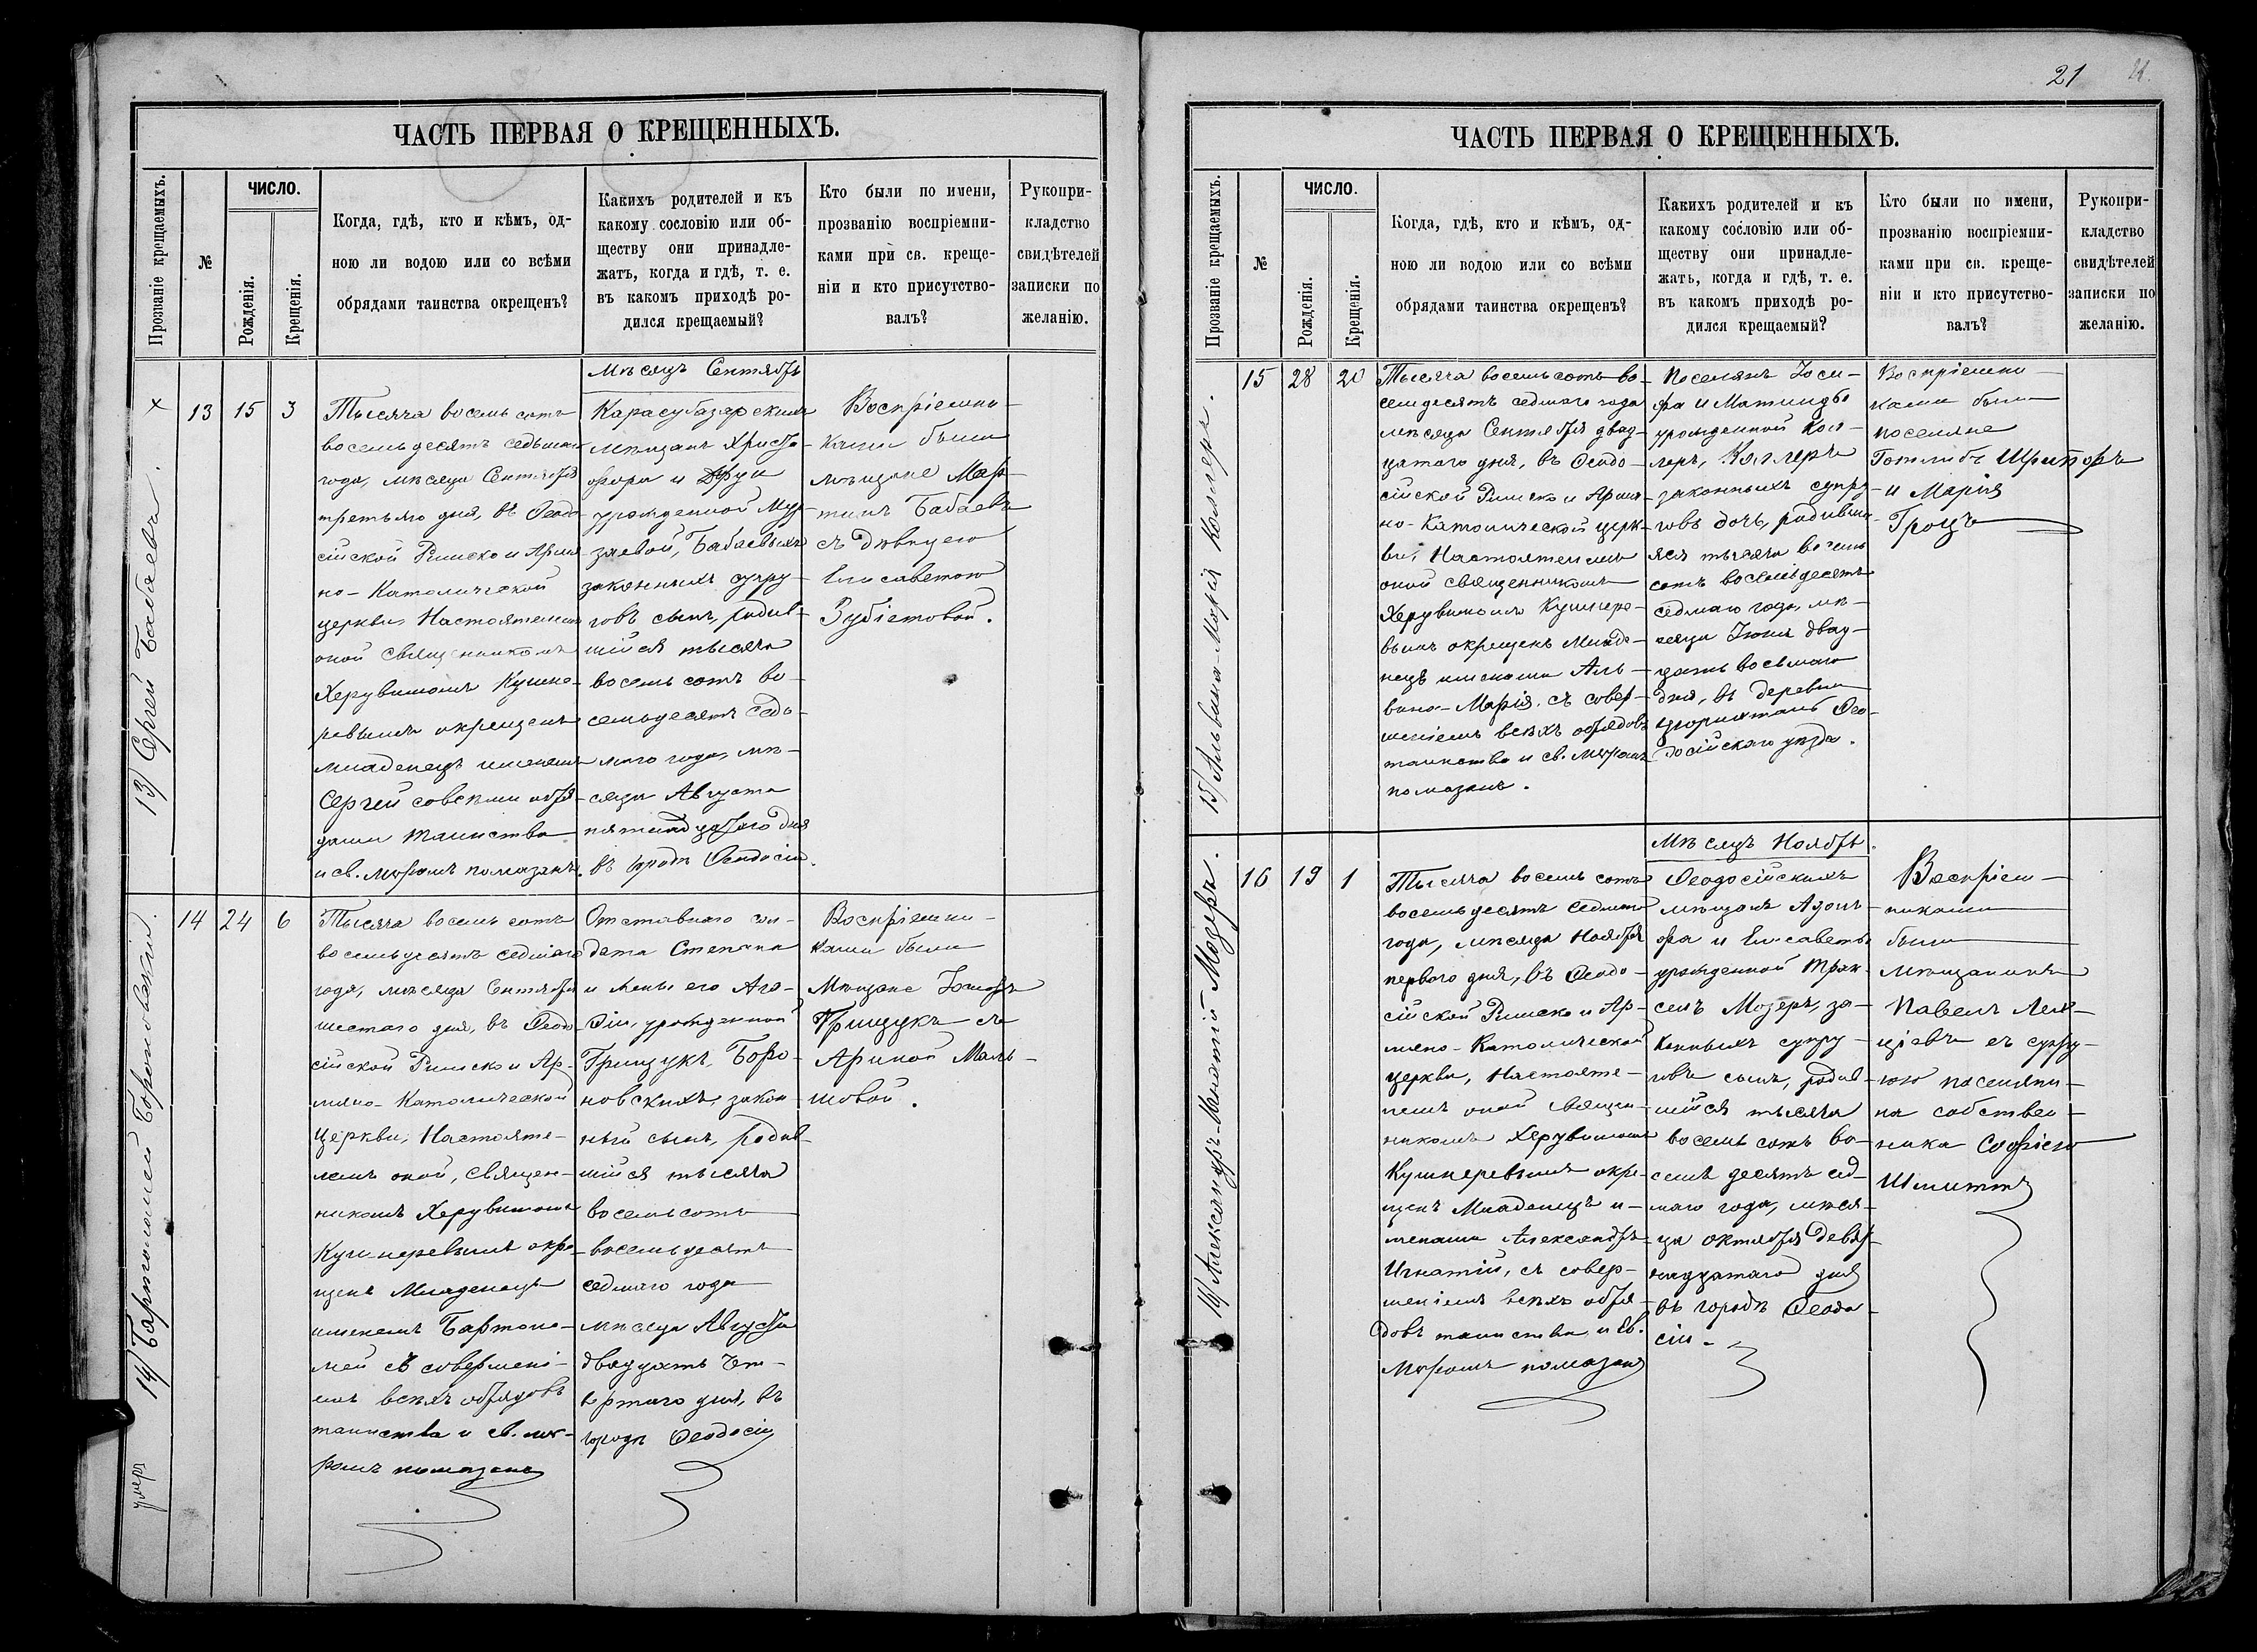 ЧАСТЬ ПЕРВАЯ О КРЕЩЕННЫХЪ.
Прозваніе крещаемыхъ.
№
ЧИСЛО.
Рожденія.
Крещенія.
Когда, гдѣ, кто и кѣмъ, од-
ною ли водою или со всѣми
обрядами таинства окрещенъ?
Какихъ родителей и къ
какому сословію или об-
ществу они принадле-
жатъ, когда и гдѣ, т. е.
въ какомъ приходѣ ро-
дился крещаемый?
Кто были по имени,
прозванію воспріемни-
ками при св. креще-
ніи и кто присутство-
валъ?
Рукопри-
кладство
свидѣтелей
записки по
желанію.
13) Сергей Бабаевъ.
13 15 3
Тысяча восемь сотъ
восемьдесятъ седьмаго
года, мѣсяца Сентября
третьяго дня, въ Ѳеодо-
сійской Римско и Армя
но-Католической
церкви, Настоятелемъ
оной священникомъ
Херувимомъ Кушне-
ревымъ окрещенъ
младенецъ именемъ
Сергей со всѣми обря-
дами таинства
и св. мѵромъ помазанъ.
Мѣсяцъ Сентябрь
Карасубазарскихъ
мѣщанъ Христо
фора и
урожденной Мур-
заевой, Бабаевыхъ
законныхъ супру-
говъ сынъ, родив-
шійся тысяча
восемь сотъ во-
семьдесятъ седь-
маго года, мѣ-
сяца Августа
пятнадцатого дня
въ городѣ Ѳеодосіи.
Воспріемни-
ками были
мѣщане Мар-
тинъ Бабаевъ
съ дѣвицею
Елисаветою
Зубіетовой.
14) Бартоломей Бороновскій.
умеръ
14 24 6
Тысяча восемь сотъ
восемьдесятъ седмаго
года, мѣсяца Сентября
шестаго дня, въ Ѳеодо
сійской Римско и Ар-
мяно-Католической
Церкви, Настояте-
лемъ оной, священ-
никомъ Херувимомъ
Кушнеревымъ окре-
щенъ Младенецъ
именемъ Бартоло-
мей съ совершені-
емъ всѣхъ обрядовъ
таинства и св. мѵ-
ромъ помазанъ
Отставного сол-
дата Степана
и жены его Ага-
ѳіи, урожденной
Грищукъ, Боро-
новскихъ, закон-
ный сынъ, родив-
шійся тысяча
восемьсотъ
восемьдесятъ
седмаго года
мѣсяца Августа
двадцать чет-
вертаго дня, въ
городѣ Ѳеодосіи
Воспріемни-
ками были
Мѣщане Іосифъ
Грищукъ съ
Ариной Маль-
шовой.
21
21.
ЧАСТЬ ПЕРВАЯ О КРЕЩЕННЫХЪ.
Прозваніе крещаемыхъ.
№
ЧИСЛО.
Рожденія.
Крещенія.
Когда, гдѣ, кто и кѣмъ, од-
ною ли водою или со всѣми
обрядами таинства окрещенъ?
Какихъ родителей и къ
какому сословію или об-
ществу они принадле-
жатъ, когда и гдѣ, т. е.
въ какомъ приходѣ ро-
дился крещаемый?
Кто были по имени,
прозванію воспріемни-
ками при св. креще-
ніи и кто присутство-
валъ?
Рукопри-
кладство
свидѣтелей
записки по
желанію.
15) Альвина-Марія Коллеръ.
15 28 20
Тысяча восемьсотъ во-
семдесятъ седмаго года
мѣсяца Сентября двад-
цатаго дня, въ Ѳеодо-
сійской Римско и Армя-
но-Католической церк-
ви, Настоятелемъ
оной священникомъ
Херувимомъ Кушнере-
вымъ окрещенъ Младе-
нецъ именами Аль-
вина-Марія, съ совер-
шеніемъ всѣхъ обрядовъ
таинства и св. мѵромъ
помазанъ.
Поселянъ Іоси-
фа и Матильды
урожденной Кол-
леръ, Коллеръ
законныхъ супру-
говъ дочь, родивша-
яся тысяча восемь
сотъ восемьдесятъ
седмаго года, мѣ-
сяца Іюня двад-
цать восьмаго
дня, въ деревни
Цюрихталь Ѳео-
досійскаго уѣзда.
Воспріемни-
ками были
поселяне
Готлибъ
и Марія
Гроцъ
16) Александръ-Игнатій Мозеръ.
16 19 1
Тысяча восемь сотъ
восемьдесятъ седмаго
года, мѣсяца Ноября
перваго дня, въ Ѳеодо-
сійской Римско и Ар-
мяно-Католической
церкви, Настояте-
лемъ оной священ-
никомъ Херувимомъ
Кушнеревымъ окре-
щенъ Младенецъ и-
менами Александръ
Игнатій, съ совер-
шеніемъ всѣхъ обря-
довъ таинства и св.
Мѵромъ помазанъ
Мѣсяцъ Ноябрь.
Ѳеодосійскихъ
мѣщанъ Адоль-
фа и Елисаветы
урожденной Тран-
сеъ Мозеръ, за-
конныхъ супру-
говъ сынъ, родив-
шійся тысяча
восемь сотъ во-
семь десятъ сед-
маго года, мѣся-
ца октября девят-
надцатаго дня
въ городѣ Ѳеодо-
сіи.
Воспріем-
никами
были
Мѣщанинъ
Павелъ
съ супру-
гою поселяни-
на собствен-
ника Софіею
Шмиттъ